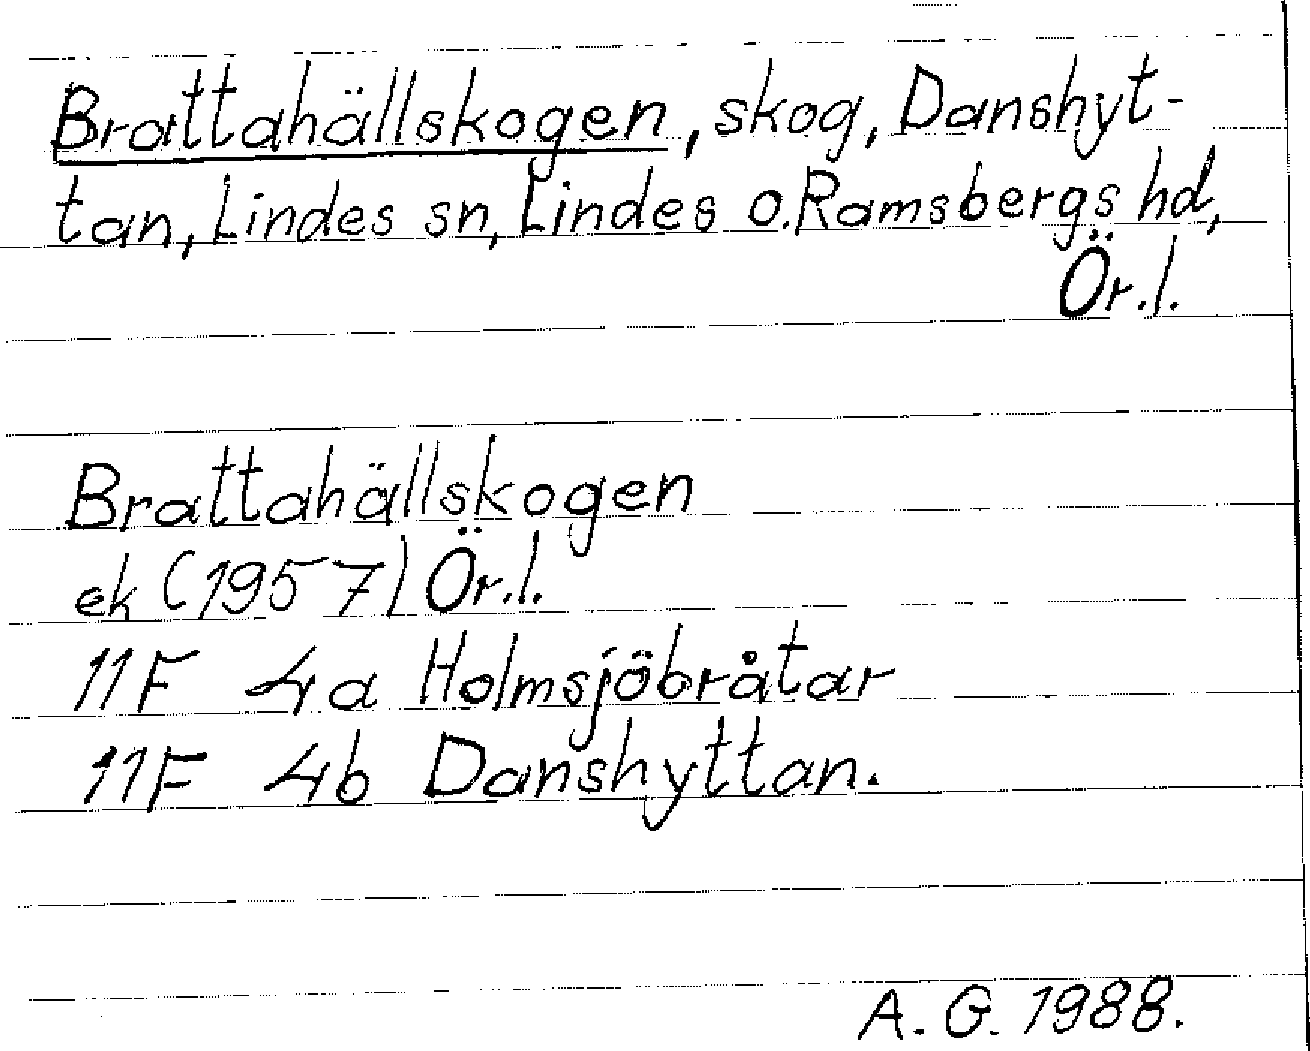 Brattahällskogen, skog, Danshyt-
tan, Lindes sn, Lindes o. Ramsbergs hd,
Ör.l.
Brattahällskogen
ek (1957) Ör.l.
11F 4a Holmsjöbråtar
11F 4b Danshyttan.
A. G. 1988.